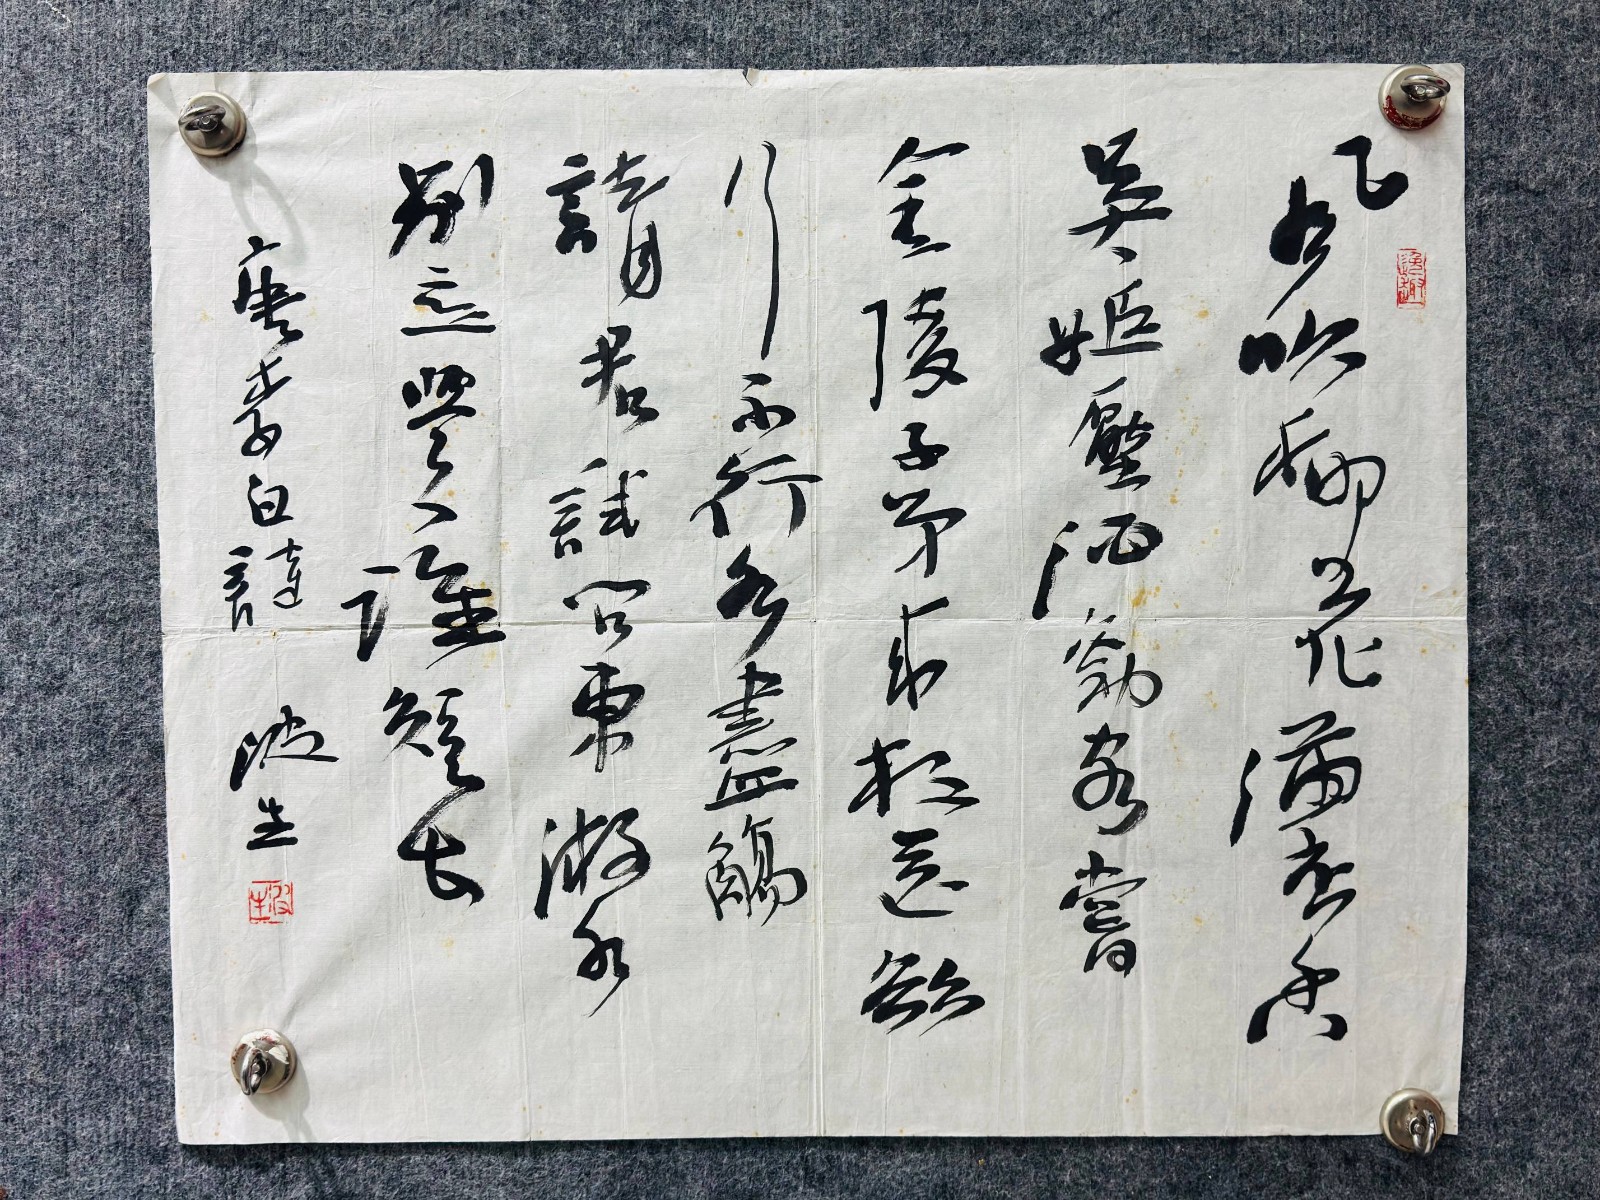 逸趣
風吹柳花滿店香
吳姬壓酒勸客嘗
金陵子弟來相送欲
行不行各盡觴
請君試問東流水
別意與之誰短長
唐李白詩 波生
波生